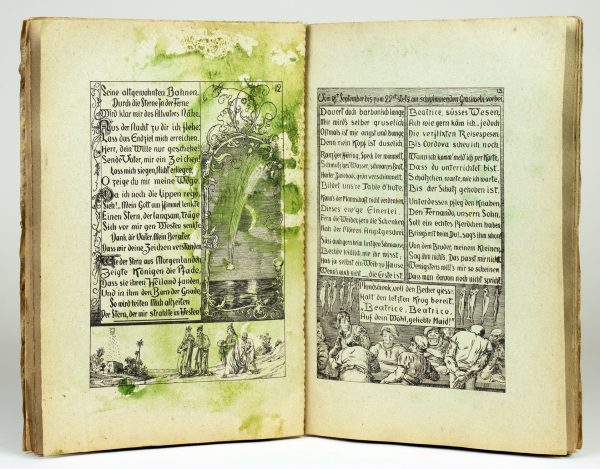 Seine altgewohnten Bahnen.
Durch die Sterne in der Ferne
Wird klar mir des Allvaters Nähe.
Aus der Nacht zu dir ich flehe:
Lass das Endziel mich erreichen,
Herr, dein Wille nur geschehe!
Sende Vater, mir ein Zeichen!
Lass mich siegen, nicht erliegen,
O zeige du mir meine Wege
Da ich noch die Lippen rege,
Sieh!.. Mein Gott am Himmel lenkte
Einen Stern, der langsam, träge
Sich vor mir gen Westen senkte
Dank dir Vater. Mein Berater,
Dass mir deine Zeichen verstanden
Wie der Stern aus Morgenlanden
Zeigte Königen die Pfade,
Dass sie ihren Heiland fanden,
Und in ihm den Born der Gnade,
So wird leiten Mich allzeiten
Der Stern, der mir strahlte im Westen!
12
13
Vom 17ten September bis zum 22sten stets an schwimmenden Grasinseln vorbei.
Dauert doch barbarisch lange
Mir wird's selber gruselich,
Oftmals ist mir angst und bange
Denn mein Kopf ist duselich.
Ranz'ger Häring, Speck der wimmelt,
Schmutz'ges Wasser, schwarzes Brot,
Harter Zwieback, grün verschimmelt
Bildet uns're Table d'hôte.
Kann's der Mannschaft nicht verdenken,
Dieses ew'ge Einerlei.
Fern die Weiber, fern die Schenken
Nah der Möven Angstgeschrei.
Becher leidlich mir ihr misst;
Hab zu selbst ein Weib zu Hause,
Wenn's auch nicht __ die Erste ist
Beatrice, süsses Wesen,
Ach wie gern käm ich, jedoch
Die verflixten Reisespesen.
Bis Cordova scheu ich noch.
Wann ich komm' meld' ich per Karte,
Dass du unterrichtet bist.
Schätzchen, warte, wie ich warte,
Bis der Schatz gehoben ist.
Unterdessen pfleg den Knaben
Den Fernando, unsern Sohn,
Soll ein echtes Pferdchen haben
Bring ich's mit dem Du!, sag's ihm schon
Von dem Bruder, meinem Kleinen,
Sag ihm nichts. Das passt mir nicht
Wenigstens will's mir so scheinen
Dass man davon noch nicht spricht
Mundschenk, voll den Becher giess
Halt den letzten Krug bereit,
„Beatrice, Beatrice,
Auf dein Wohl, geliebte Maid!"